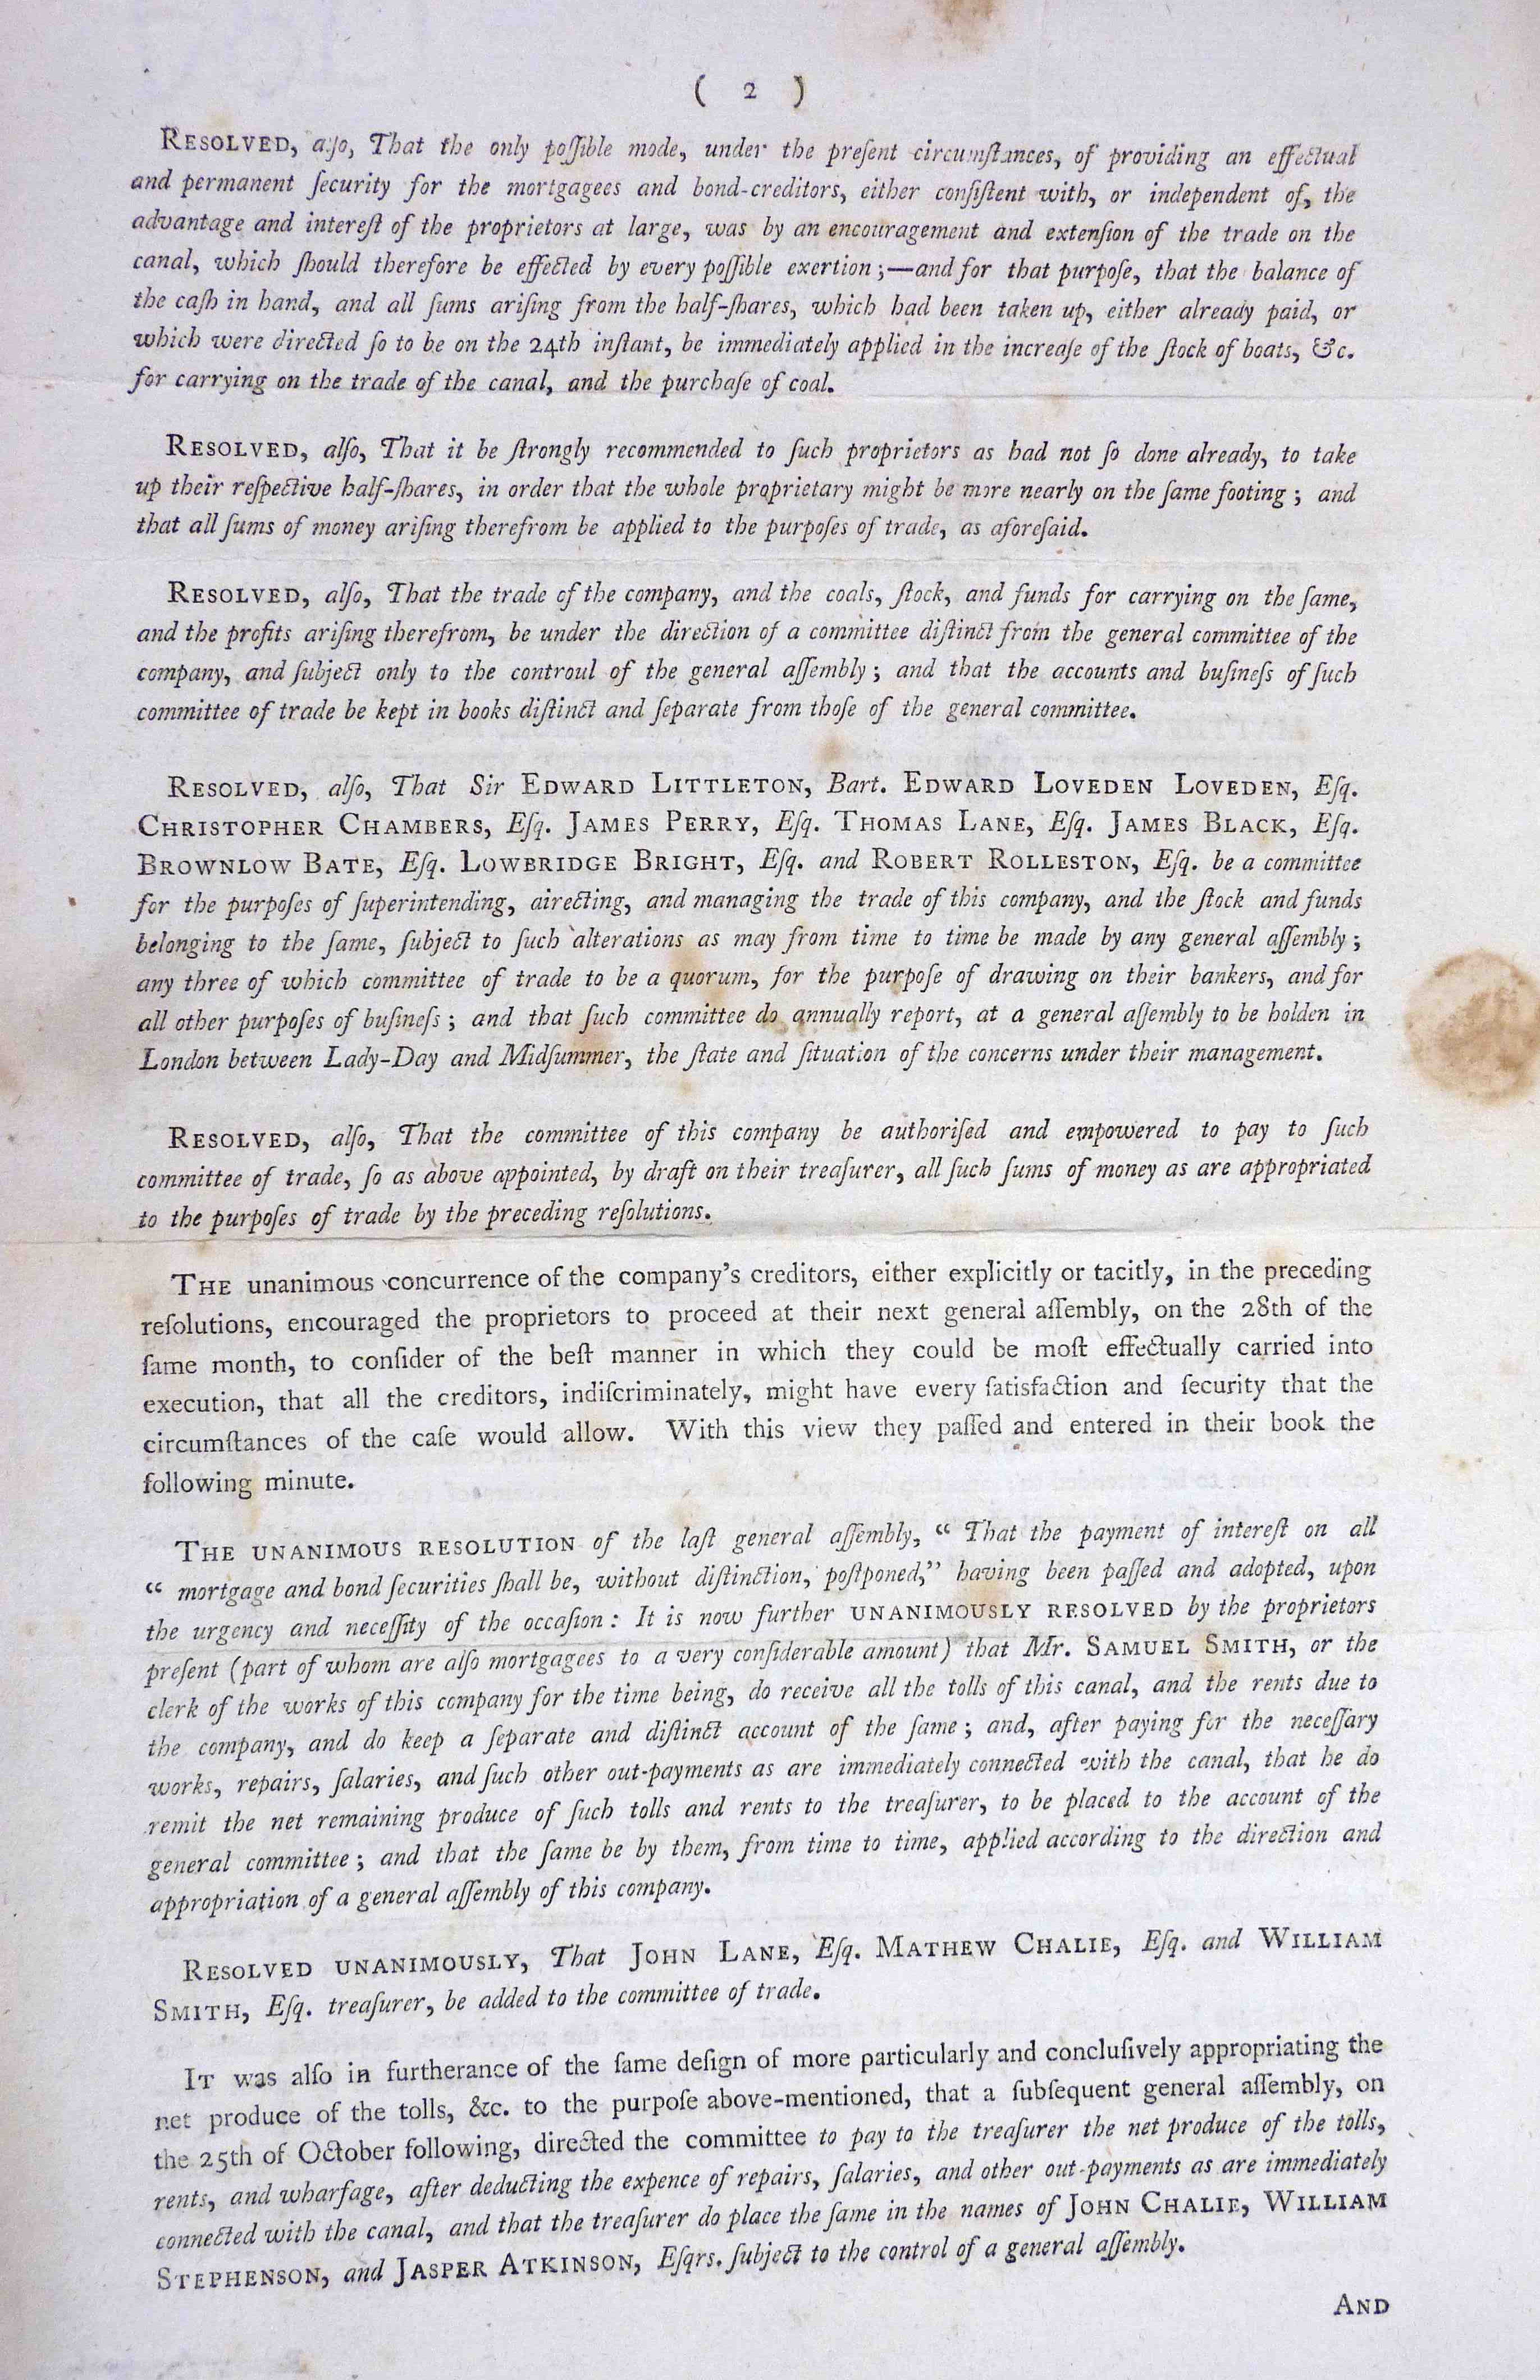 ( 2 )
RESOLVED, alſo, That the only poſſible mode, under the preſent circumſtances, of providing an effectual
and permanent ſecurity for the mortgagees and bond-creditors, either conſiſtent with, or independent of, the
advantage and intereſt of the proprietors at large, was by an encouragement and extenſion of the trade on the
canal, which ſhould therefore be effected by every poſſible exertion;—and for that purpoſe, that the balance of
the caſh in hand, and all ſums ariſing from the half-ſhares, which had been taken up, either already paid, or
which were directed ſo to be on the 24th inſtant, be immediately applied in the increaſe of the ſtock of boats, &c.
for carrying on the trade of the canal, and the purchaſe of coal.
RESOLVED, alſo, That it be ſtrongly recommended to ſuch proprietors as had not ſo done already, to take
up their reſpective half-ſhares, in order that the whole proprietary might be more nearly on the ſame footing; and
that all ſums of money ariſing therefrom be applied to the purpoſes of trade, as aforeſaid.
RESOLVED, alſo, That the trade of the company, and the coals, ſtock, and funds for carrying on the ſame,
and the profits ariſing therefrom, be under the direction of a committee diſtinct from the general committee of the
company, and ſubject only to the controul of the general aſſembly; and that the accounts and buſineſs of ſuch
committee of trade be kept in books diſtinct and ſeparate from thoſe of the general committee.
RESOLVED, alſo, That Sir EDWARD LITTLETON, Bart. EDWARD LOVEDEN LOVEDEN, Eſq.
CHRISTOPHER CHAMBERS, Eſq. JAMES PERRY, Eſq. THOMAS LANE, Eſq. JAMES BLACK, Eſq.
BROWNLOW BATE, Eſq. LOWBRIDGE BRIGHT, Eſq. and ROBERT ROLLESTON, Eſq. be a committee
for the purpoſes of ſuperintending, directing, and managing the trade of this company, and the ſtock and funds
belonging to the ſame, ſubject to ſuch alterations as may from time to time be made by any general aſſembly;
any three of which committee of trade to be a quorum, for the purpoſe of drawing on their bankers, and for
all other purpoſes of buſineſs; and that ſuch committee do annually report, at a general aſſembly to be holden in
London between Lady-Day and Midſummer, the ſtate and ſituation of the concerns under their management.
RESOLVED, alſo, That the committee of this company be authoriſed and empowered to pay to ſuch
committee of trade, ſo as above appointed, by draft on their treaſurer, all ſuch ſums of money as are appropriated
to the purpoſes of trade by the preceding reſolutions.
THE unanimous concurrence of the company's creditors, either explicitly or tacitly, in the preceding
reſolutions, encouraged the proprietors to proceed at their next general aſſembly, on the 28th of the
ſame month, to conſider of the beſt manner in which they could be moſt effectually carried into
execution, that all the creditors, indiſcriminately, might have every ſatisfaction and ſecurity that the
circumſtances of the caſe would allow. With this view they paſſed and entered in their book the
following minute.
THE UNANIMOUS RESOLUTION of the laſt general aſſembly, “ That the payment of intereſt on all
“ mortgage and bond ſecurities ſhall be, without diſtinction, poſtponed,” having been paſſed and adopted, upon
the urgency and neceſſity of the occaſion: It is now further UNANIMOUSLY RESOLVED by the proprietors
preſent (part of whom are alſo mortgagees to a very conſiderable amount) that Mr. SAMUEL SMITH, or the
clerk of the works of this company for the time being, do receive all the tolls of this canal, and the rents due to
the company, and do keep a ſeparate and diſtinct account of the ſame; and, after paying for the neceſſary
works, repairs, ſalaries, and ſuch other out-payments as are immediately connected with the canal, that he do
remit the net remaining produce of ſuch tolls and rents to the treaſurer, to be placed to the account of the
general committee; and that the ſame be by them, from time to time, applied according to the direction and
appropriation of a general aſſembly of this company.
RESOLVED UNANIMOUSLY, That JOHN LANE, Eſq. MATHEW CHALIE, Eſq. and WILLIAM
SMITH, Eſq. treaſurer, be added to the committee of trade.
IT was alſo in furtherance of the ſame deſign of more particularly and concluſively appropriating the
net produce of the tolls, &c. to the purpoſe above-mentioned, that a ſubſequent general aſſembly, on
the 25th of October following, directed the committee to pay to the treaſurer the net produce of the tolls,
rents, and wharfage, after deducting the expence of repairs, ſalaries, and other out-payments as are immediately
connected with the canal, and that the treaſurer do place the ſame in the names of JOHN CHALIE, WILLIAM
STEPHENSON, and JASPER ATKINSON, Eſqrs. ſubject to the control of a general aſſembly.
AND